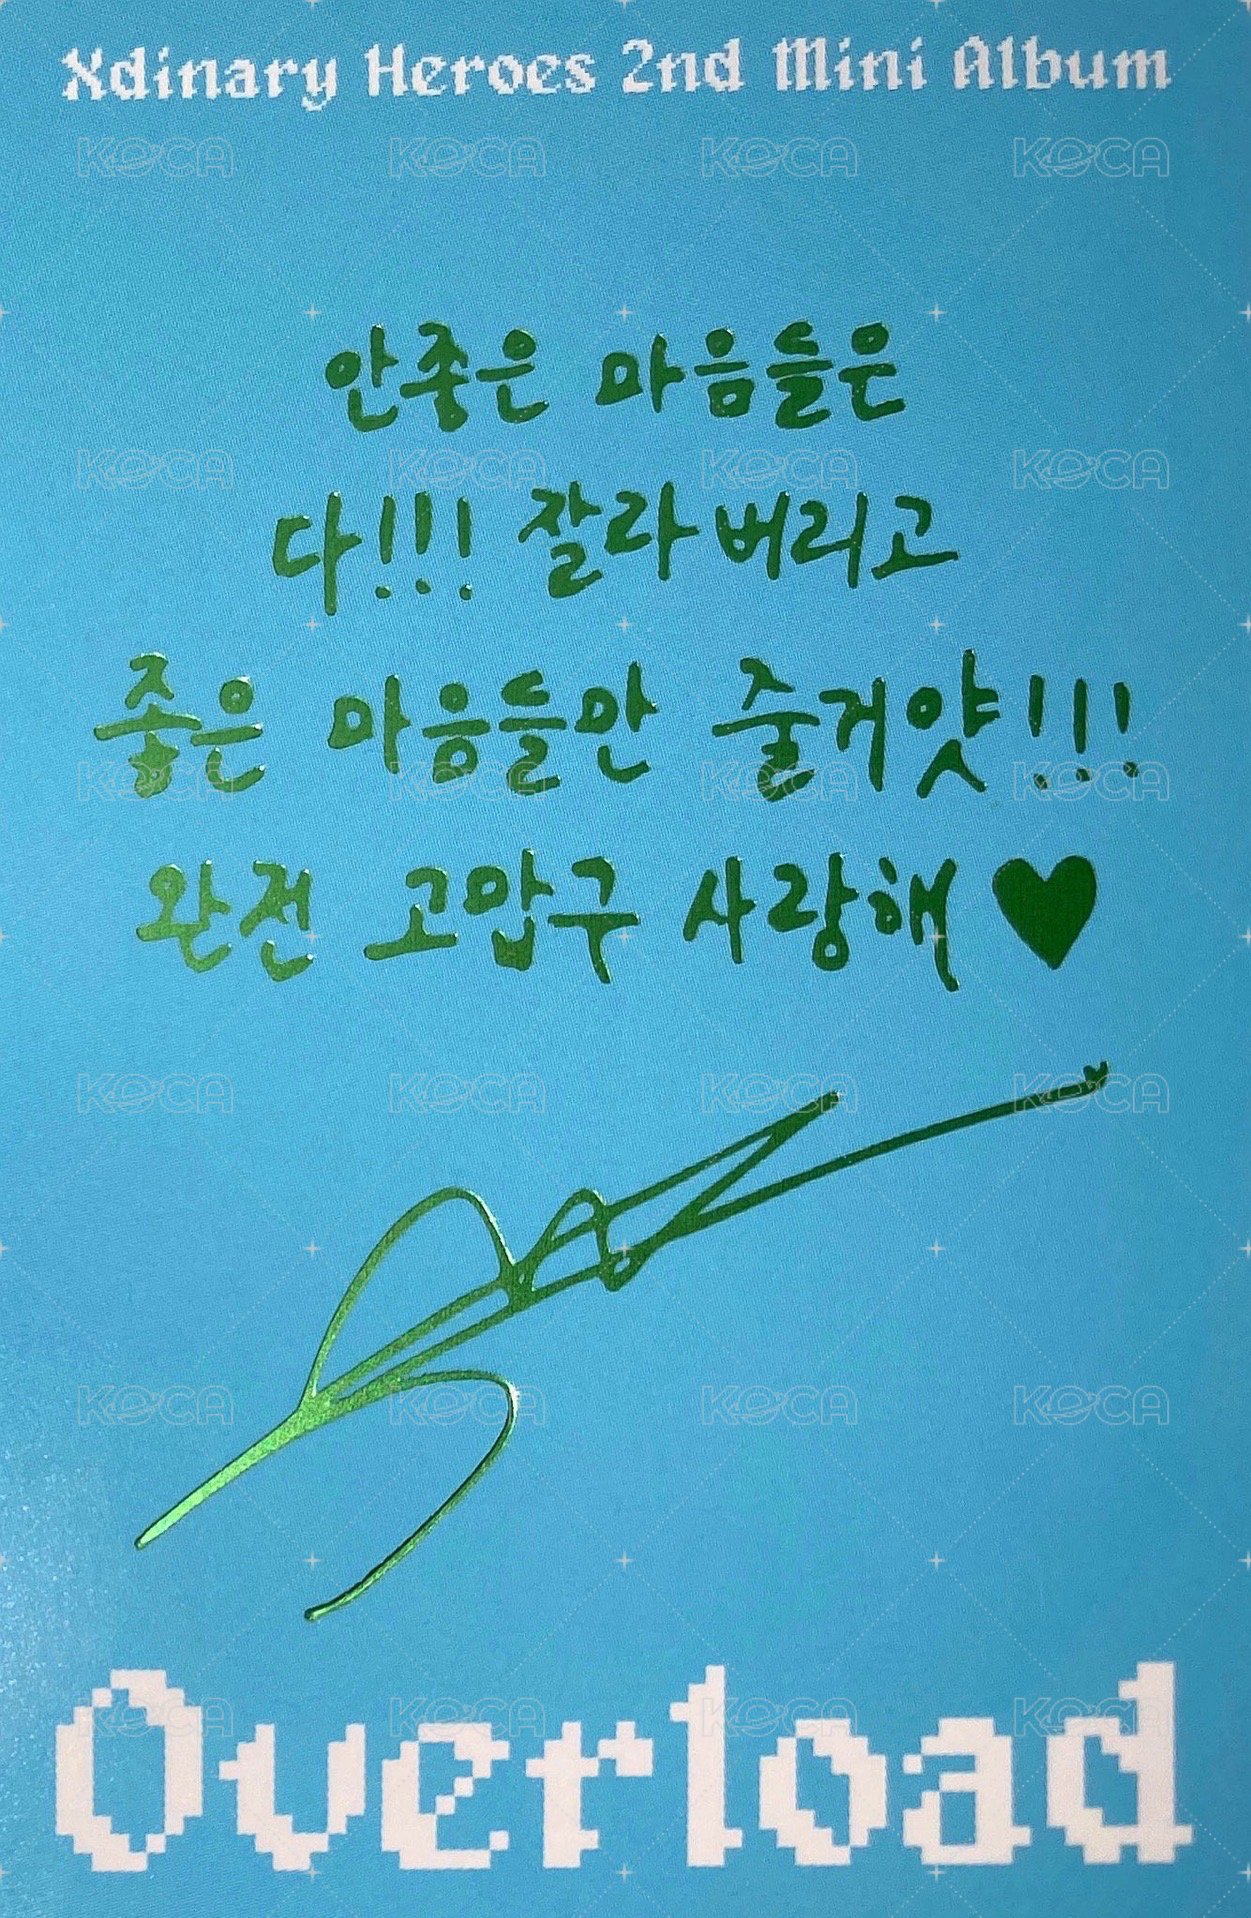 Xdinary Heroes 2nd Mini Album
안좋은 마음들은
다!!! 잘라버리고
좋은 마음들만 줄거얏!!!
완전 고맙구 사랑해♥
Overload
KOCA